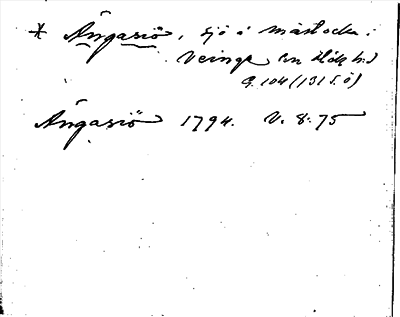 * Ängasjö, sjö i Mästocka i
Veinge sn Höks hd
G. 104 (131 S. Ö)
Ängasiö 1794. V. 8:75